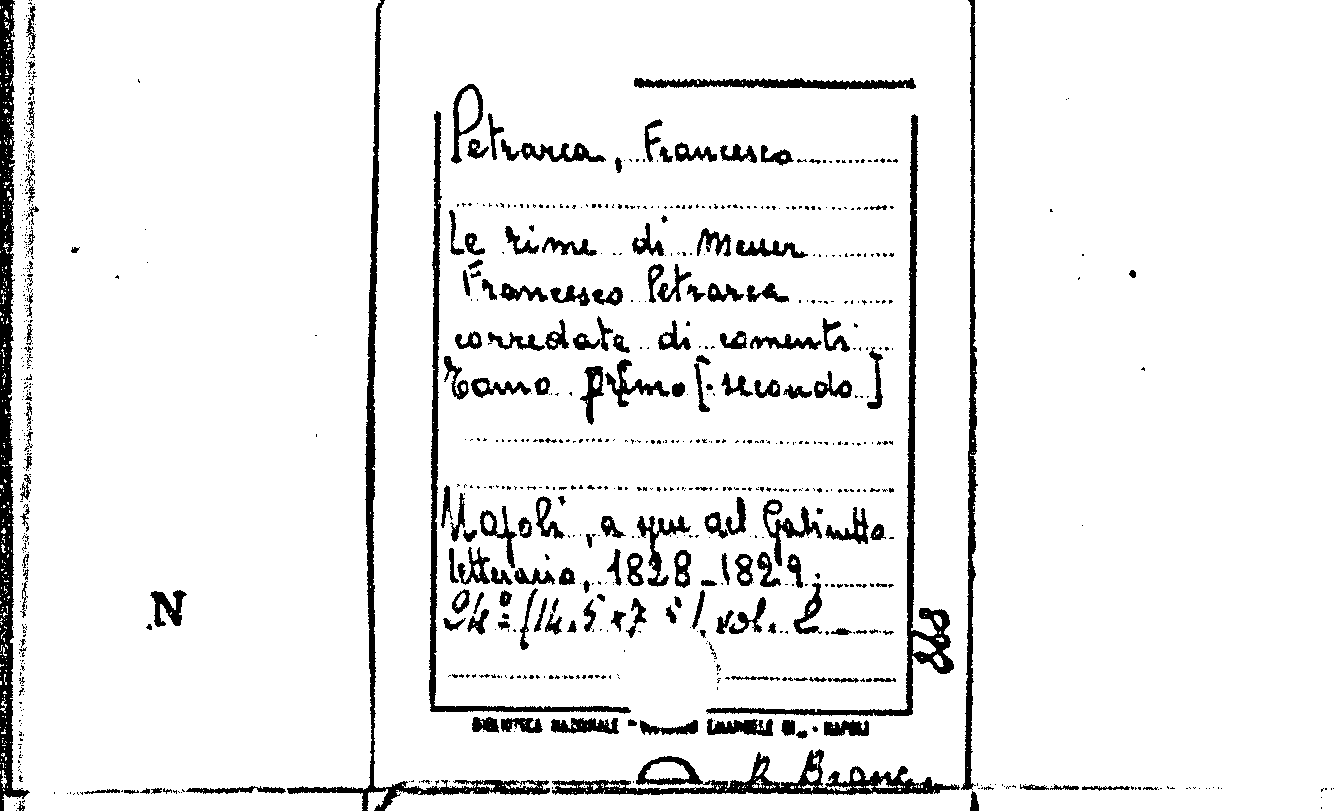 Petrarca, Francesco
Le rime di Messer
Francesco Petrarca
corredate di comenti
Tomo primo [-secondo]
Napoli, a spese del Gabinetto
letterario, 1828-1829;
24º (14.5x7 5) vol. 2
N
BIBLIOTECA NAZIONALE - EMANUELE III - NAPOLI
R